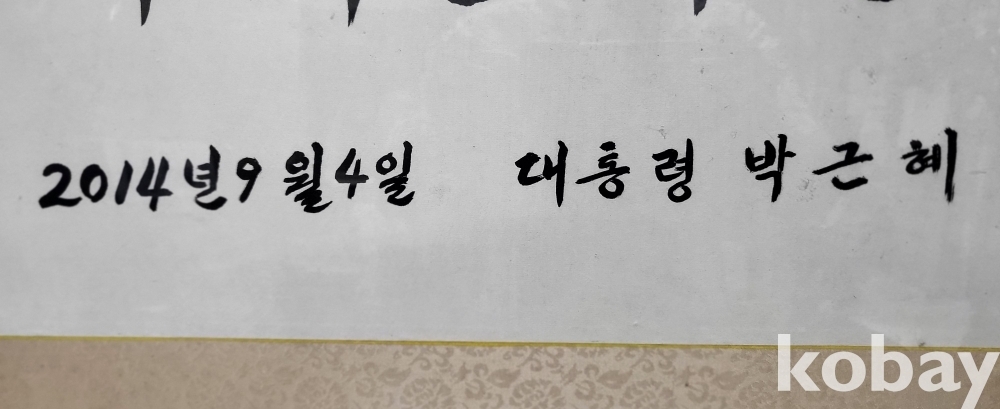 2014년 9월 4일 대통령 박근혜
kobay